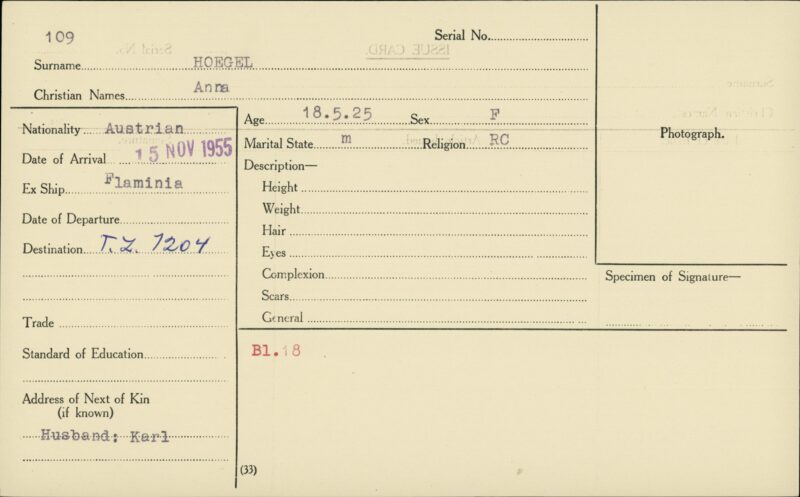 109
Serial No.
Surname HOEGEL
Christian Names Anna
Nationality Austrian
Date of Arrival 15 NOV 1955
Ex Ship Flaminia
Date of Departure
Destination T.Z. 7204
Trade
Standard of Education
Address of Next of Kin
(if known)
Husband: Karl
Age 18.5.25 Sex F
Marital State m Religion RC
Description—
Height
Weight
Hair
Eyes
Complexion
Scars
General
Bl.18
(33)
Photograph.
Specimen of Signature—
ISSUE CARD.
Serial No.
Surname
Christian Names